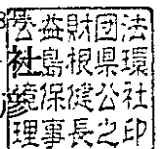 公益財団法
社島根県環
境保健公社
理事長之印
彦